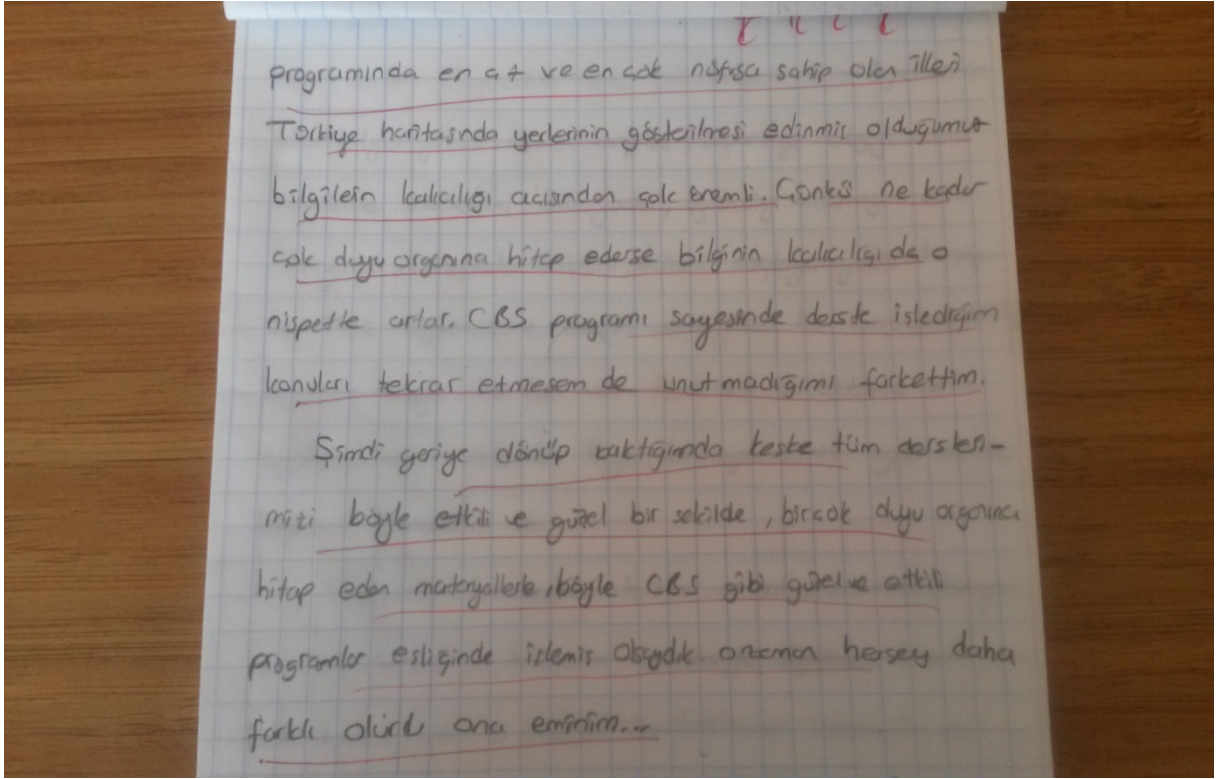 programında en az ve en çok nüfusa sahip olan illeri
Türkiye haritasında yerlerinin gösterilmesi edinmiş olduğumuz
bilgilerin kalıcılığı açısından çok önemli. Çünkü ne kadar
çok duyu organına hitap ederse bilginin kalıcılığı da o
nispette artar. CBS programı sayesinde derste işlediğim
konuları tekrar etmesem de unutmadığımı farkettim.
Şimdi geriye dönüp baktığımda keşke tüm dersleri-
mizi böyle etkili ve güzel bir şekilde, birçok duyu organına
hitap eden materyallerle, böyle CBS gibi güzel ve etkili
programlar eşliğinde işlemiş olsaydık o zaman herşey daha
farklı olurdu ona eminim...